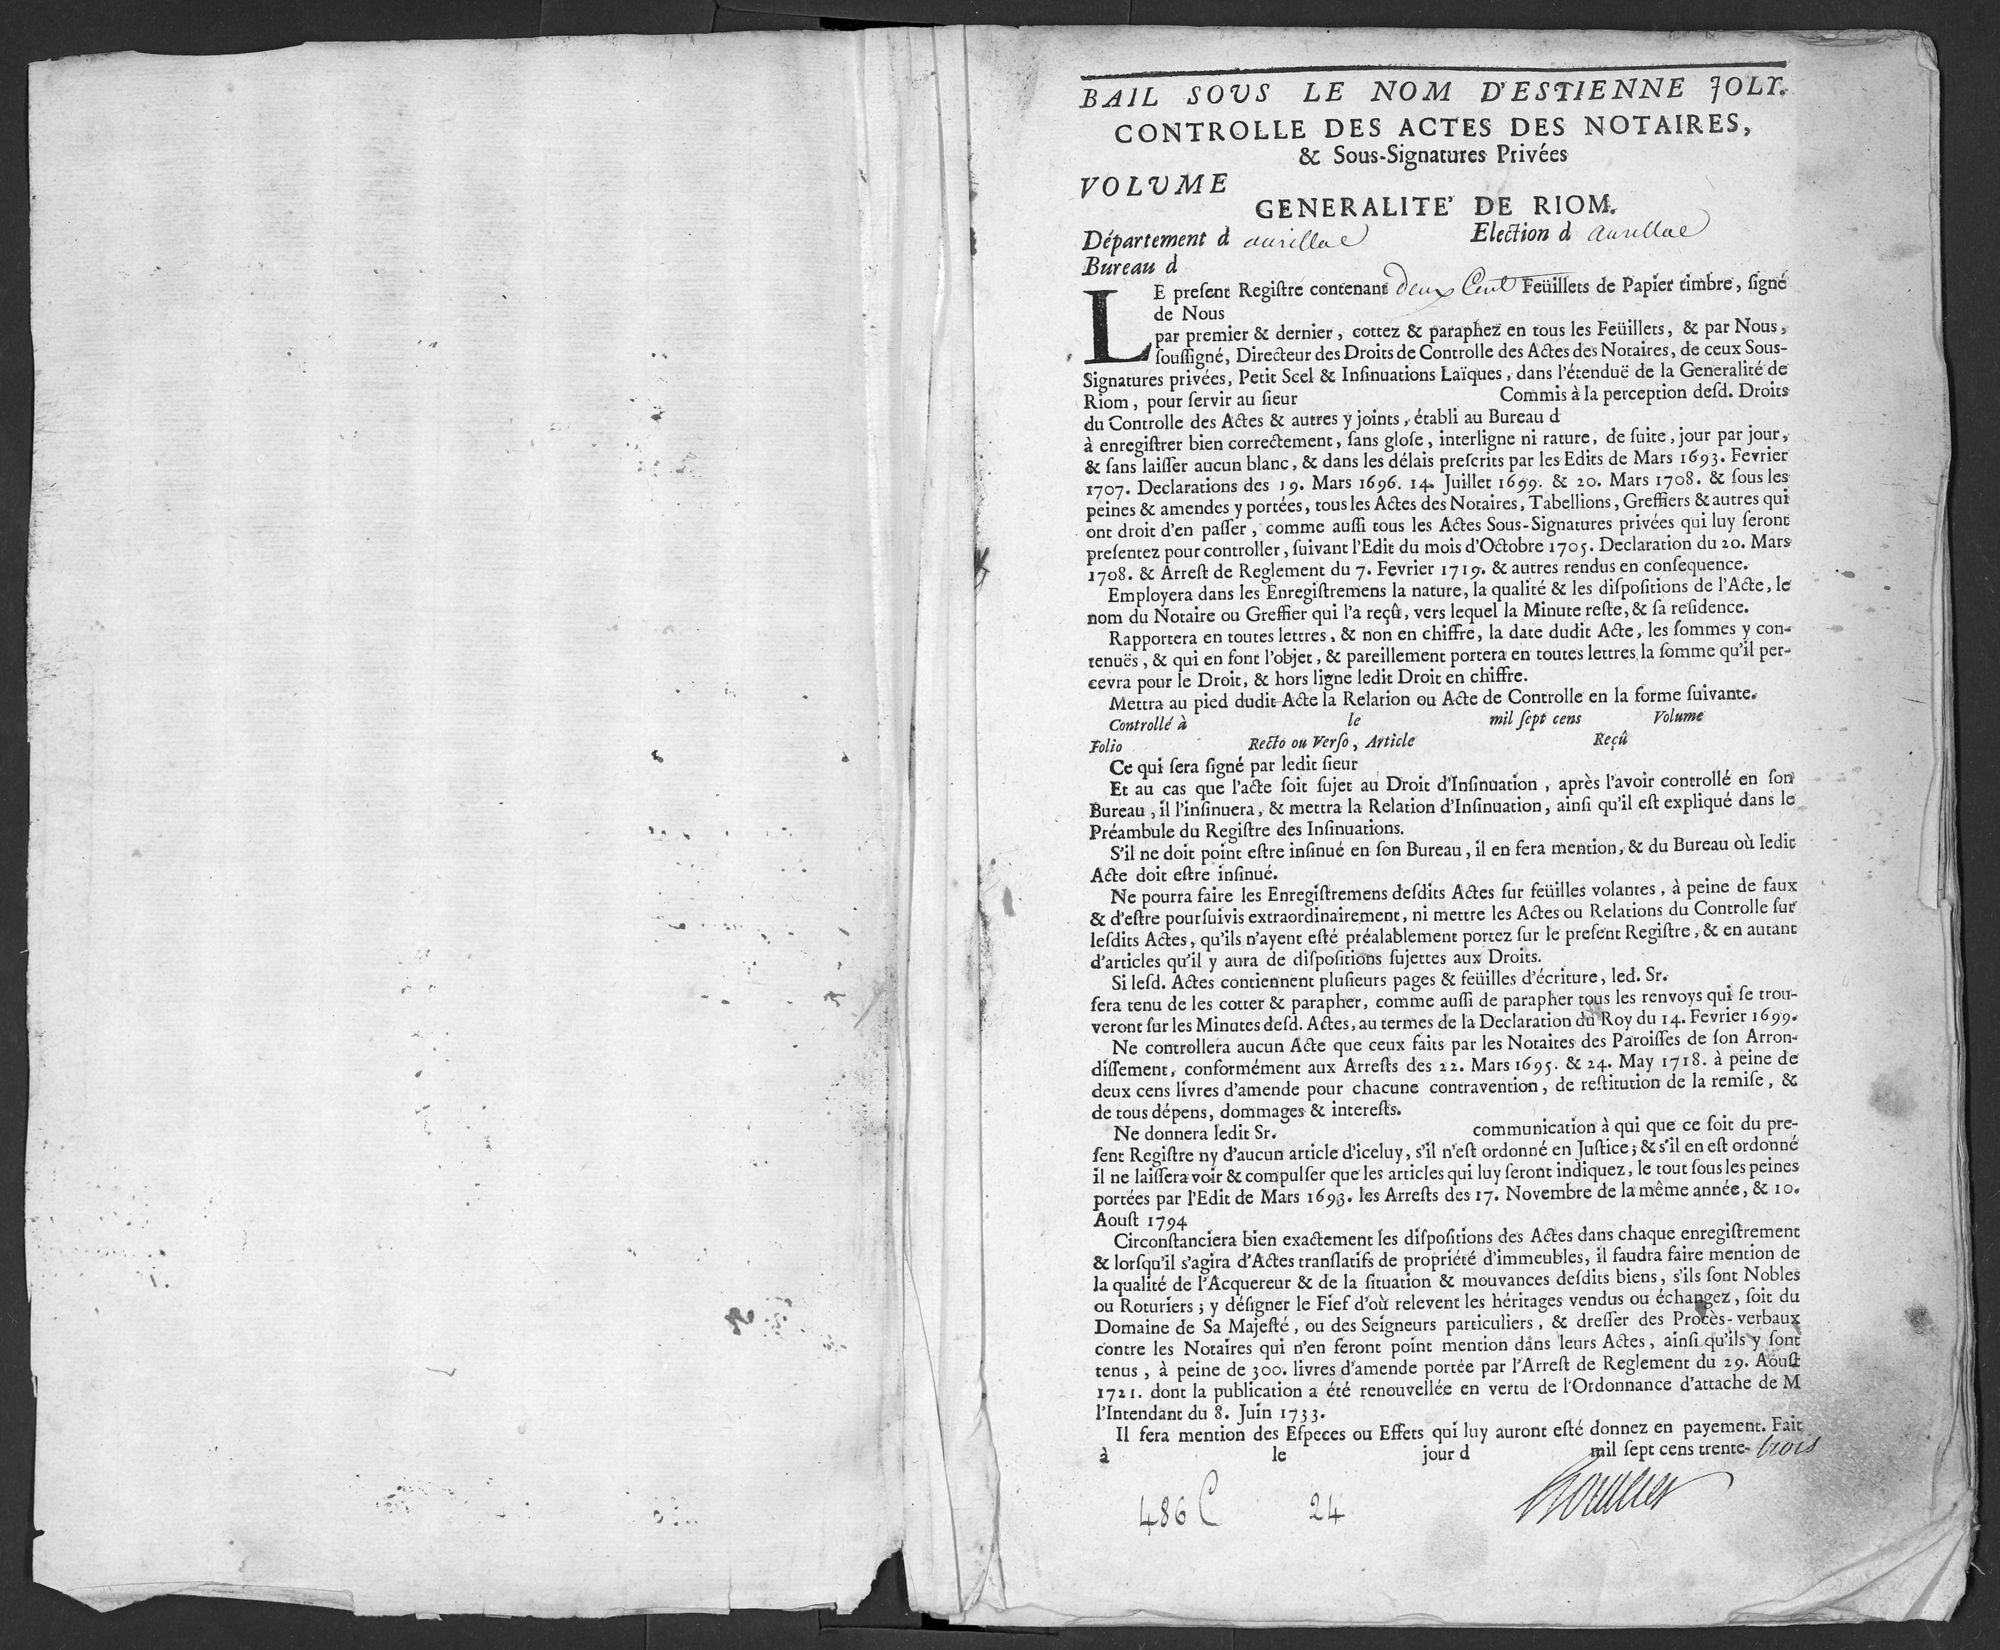 BAIL SOUS LE NOM D'ESTIENNE JOLY.
CONTROLLE DES ACTES DES NOTAIRES,
& Sous-Signatures Privées
VOLUME
GENERALITE' DE RIOM.
Département d aurillac Election d aurillac
Bureau d
LE preſent Regiſtre contenant deux Cent Feüillets de Papier timbre, ſigné
de Nous
par premier & dernier, cottez & paraphez en tous les Feüillets, & par Nous,
ſouſſigné, Directeur des Droits de Controlle des Actes des Notaires, de ceux Sous-
Signatures privées, Petit Scel & Inſinuations Laïques, dans l'étenduë de la Generalité de
Riom, pour ſervir au ſieur Commis à la perception deſd. Droits
du Controlle des Actes & autres y joints, établi au Bureau d
à enregiſtrer bien correctement, ſans gloſe, interligne ni rature, de ſuite, jour par jour,
& ſans laiſſer aucun blanc, & dans les délais preſcrits par les Edits de Mars 1693. Fevrier
1707. Declarations des 19. Mars 1696. 14. Juillet 1699. & 20. Mars 1708. & ſous les
peines & amendes y portées, tous les Actes des Notaires, Tabellions, Greffiers & autres qui
ont droit d'en paſſer, comme auſſi tous les Actes Sous-Signatures privées qui luy ſeront
preſentez pour controller, ſuivant l'Edit du mois d'Octobre 1705. Declaration du 20. Mars
1708. & Arreſt de Reglement du 7. Fevrier 1719. & autres rendus en conſequence.
Employera dans les Enregiſtremens la nature, la qualité & les diſpoſitions de l'Acte, le
nom du Notaire ou Greffier qui l'a reçû, vers lequel la Minute reſte, & ſa reſidence.
Rapportera en toutes lettres, & non en chiffre, la date dudit Acte, les ſommes y con-
tenuës, & qui en font l'objet, & pareillement portera en toutes lettres la ſomme qu'il per-
cevra pour le Droit, & hors ligne ledit Droit en chiffre.
Mettra au pied dudit Acte la Relation ou Acte de Controlle en la forme ſuivante.
Controllé à le mil ſept cens Volume
Folio Recto ou Verſo, Article Reçû
Ce qui ſera ſigné par ledit ſieur
Et au cas que l'acte ſoit ſujet au Droit d'Inſinuation, après l'avoir controllé en ſon
Bureau, il l'inſinuera, & mettra la Relation d'Inſinuation, ainſi qu'il eſt expliqué dans le
Préambule du Regiſtre des Inſinuations.
S'il ne doit point eſtre inſinué en ſon Bureau, il en fera mention, & du Bureau où ledit
Acte doit eſtre inſinué.
Ne pourra faire les Enregiſtremens deſdits Actes ſur feüilles volantes, à peine de faux
& d'eſtre pourſuivis extraordinairement, ni mettre les Actes ou Relations du Controlle ſur
leſdits Actes, qu'ils n'ayent eſté préalablement portez ſur le preſent Regiſtre, & en autant
d'articles qu'il y aura de diſpoſitions ſujettes aux Droits.
Si leſd. Actes contiennent pluſieurs pages & feüilles d'écriture, led. Sr.
ſera tenu de les cotter & parapher, comme auſſi de parapher tous les renvoys qui ſe trou-
veront ſur les Minutes deſd. Actes, au termes de la Declaration du Roy du 14. Fevrier 1699.
Ne controllera aucun Acte que ceux faits par les Notaires des Paroiſſes de ſon Arron-
diſſement, conformément aux Arreſts des 22. Mars 1695. & 24. May 1718. à peine de
deux cens livres d'amende pour chacune contravention, de reſtitution de la remiſe, &
de tous dépens, dommages & intereſts.
Ne donnera ledit Sr. communication à qui que ce ſoit du pre-
ſent Regiſtre ny d'aucun article d'iceluy, s'il n'eſt ordonné en Juſtice; & s'il en eſt ordonné
il ne laiſſera voir & compulſer que les articles qui luy ſeront indiquez, le tout ſous les peines
portées par l'Edit de Mars 1693. les Arreſts des 17. Novembre de la même année, & 10.
Aouſt 1794
Circonſtanciera bien exactement les diſpoſitions des Actes dans chaque enregiſtrement
& lorſqu'il s'agira d'Actes tranſlatifs de propriété d'immeubles, il faudra faire mention de
la qualité de l'Acquereur & de la ſituation & mouvances deſdits biens, s'ils ſont Nobles
ou Roturiers; y déſigner le Fief d'où relevent les héritages vendus ou échangez, ſoit du
Domaine de Sa Majeſté, ou des Seigneurs particuliers, & dreſſer des Procès-verbaux
contre les Notaires qui n'en feront point mention dans leurs Actes, ainſi qu'ils y ſont
tenus, à peine de 300. livres d'amende portée par l'Arreſt de Reglement du 29. Aouſt
1721. dont la publication a été renouvellée en vertu de l'Ordonnance d'attache de M
l'Intendant du 8. Juin 1733.
Il fera mention des Eſpeces ou Effets qui luy auront eſté donnez en payement. Fait
à le jour d mil ſept cens trente-trois
486 C 24